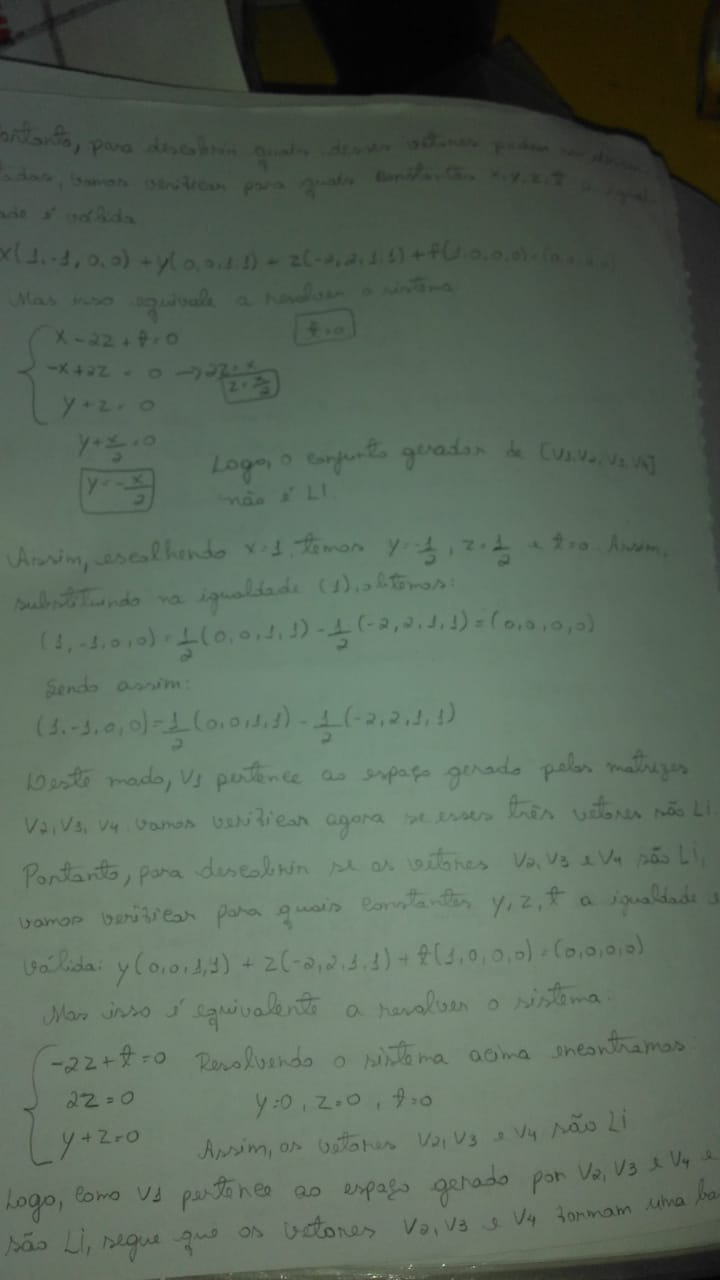 para descobrir quais desses vetores podem ser
vamos verificar para quais constantes x, y, z, t a igual
dade é válida
x(1,-1,0,0) + y(0,0,1,1) + z(-2,2,1,1) + t(1,0,0,0) = (0,0,0,0)
Mas isso equivale a resolver o sistema
x - 2z + t = 0 t = 0
-x + 2z = 0 → 2z = x
z = x/2
y + z = 0
y + x/2 = 0
Logo, o conjunto gerador de [V1, V2, V3, V4]
y = -x/2 não é LI.
Assim, escolhendo x=1, temos y = -1/2, z = 1/2 e t=0. Assim,
substituindo na igualdade (1), obtemos:
(1,-1,0,0) - 1/2 (0,0,1,1) - 1/2 (-2,2,1,1) = (0,0,0,0)
Sendo assim:
(1,-1,0,0) = 1/2 (0,0,1,1) - 1/2 (-2,2,1,1)
Deste mado, V1 pertence ao espaço gerado pelas matrizes
V2, V3, V4. vamos verificar agora se esses três vetores são LI.
Portanto, para descobrir se os vetores V2, V3 e V4 são LI,
vamos verificar para quais constantes y, z, t a igualdade é
válida: y(0,0,1,1) + z(-2,2,1,1) + t(1,0,0,0) = (0,0,0,0)
Mas isso é equivalente a resolver o sistema:
-2z + t = 0 Resolvendo o sistema acima encontramos:
2z = 0 y=0, z=0, t=0
y + z = 0 Assim, os vetores V2, V3 e V4 são LI
Logo, como V1 pertence ao espaço gerado por V2, V3 e V4 e
são LI, segue que os vetores V2, V3 e V4 formam uma ba